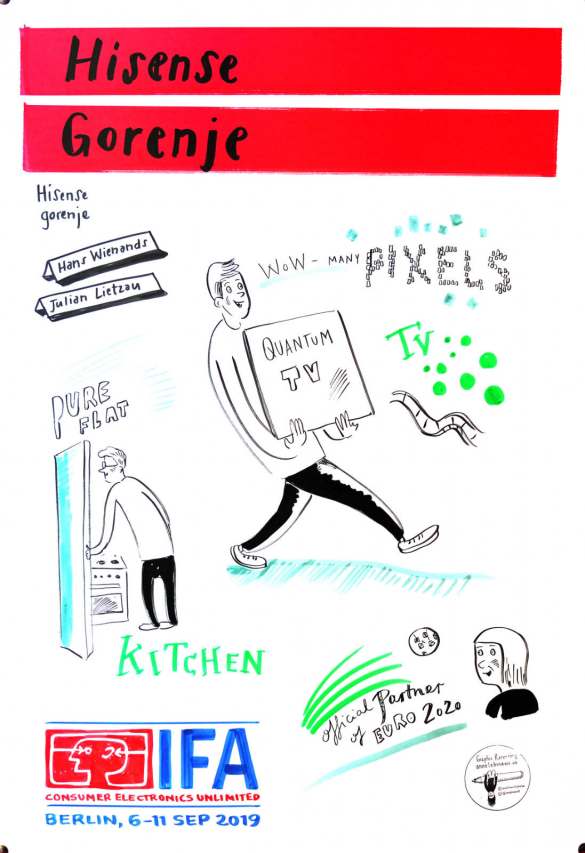 Hisense
Gorenje
Hisense
gorenje
Hans Wienands
Julian Lietzau
WOW - MANY PIXELS
QUANTUM
TV
TV
PURE
FLAT
KITCHEN
official Partner
of EURO 2020
IFA
CONSUMER ELECTRONICS UNLIMITED
BERLIN, 6-11 SEP 2019
Graphic Recording